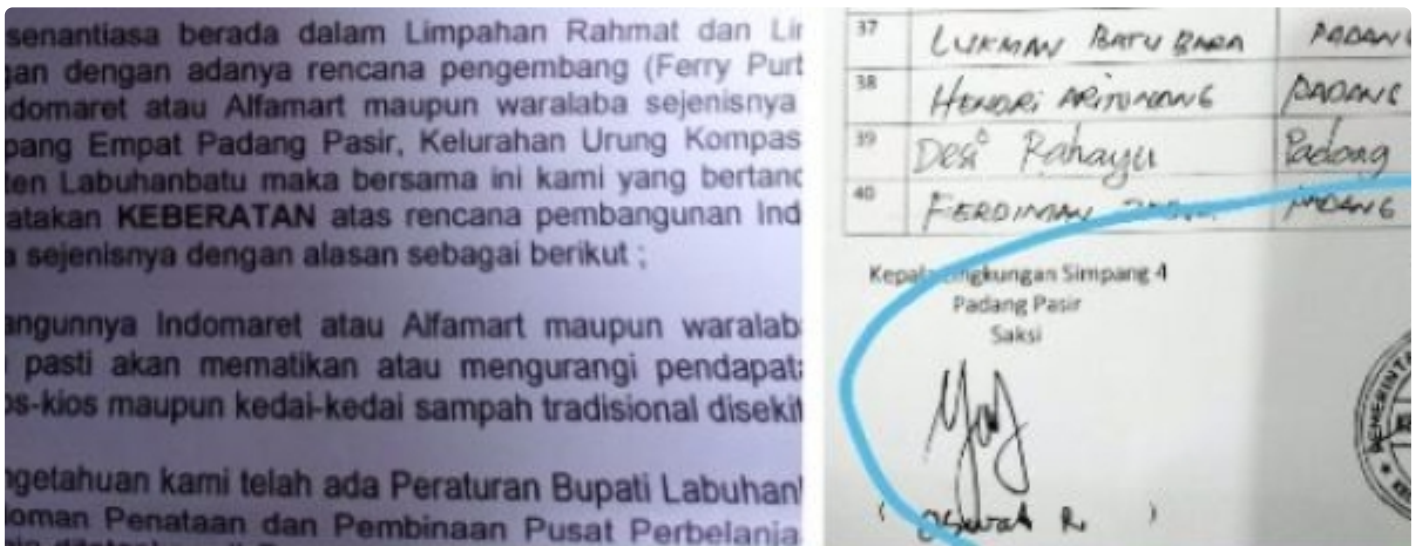 senantiasa berada dalam Limpahan Rahmat dan Lir
gan dengan adanya rencana pengembang (Ferry Purb
domaret atau Alfamart maupun waralaba sejenisnya
pang Empat Padang Pasir, Kelurahan Urung Kompas
ten Labuhanbatu maka bersama ini kami yang bertand
atakan KEBERATAN atas rencana pembangunan Ind
a sejenisnya dengan alasan sebagai berikut ;
angunnya Indomaret atau Alfamart maupun waralab
pasti akan mematikan atau mengurangi pendapata
os-kios maupun kedai-kedai sampah tradisional disekit
ngetahuan kami telah ada Peraturan Bupati Labuhan
doman Penataan dan Pembinaan Pusat Perbelanja
37 LUKMAN BATU BARA PADANG
38 HENDRI ARITONANG PADANG
39 Desi Rahayu Padang
40 FERDINAN PADANG
Kepala Lingkungan Simpang 4
Padang Pasir
Saksi
( R. )
PEMERINTA